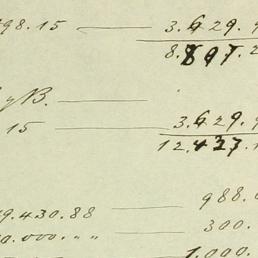 98.15 — 3.629.
8.807.2
y B. —
15 — 3.629.
12.437.
9.430.88 — 988.
0.000. „ „ — 300.
1.000.